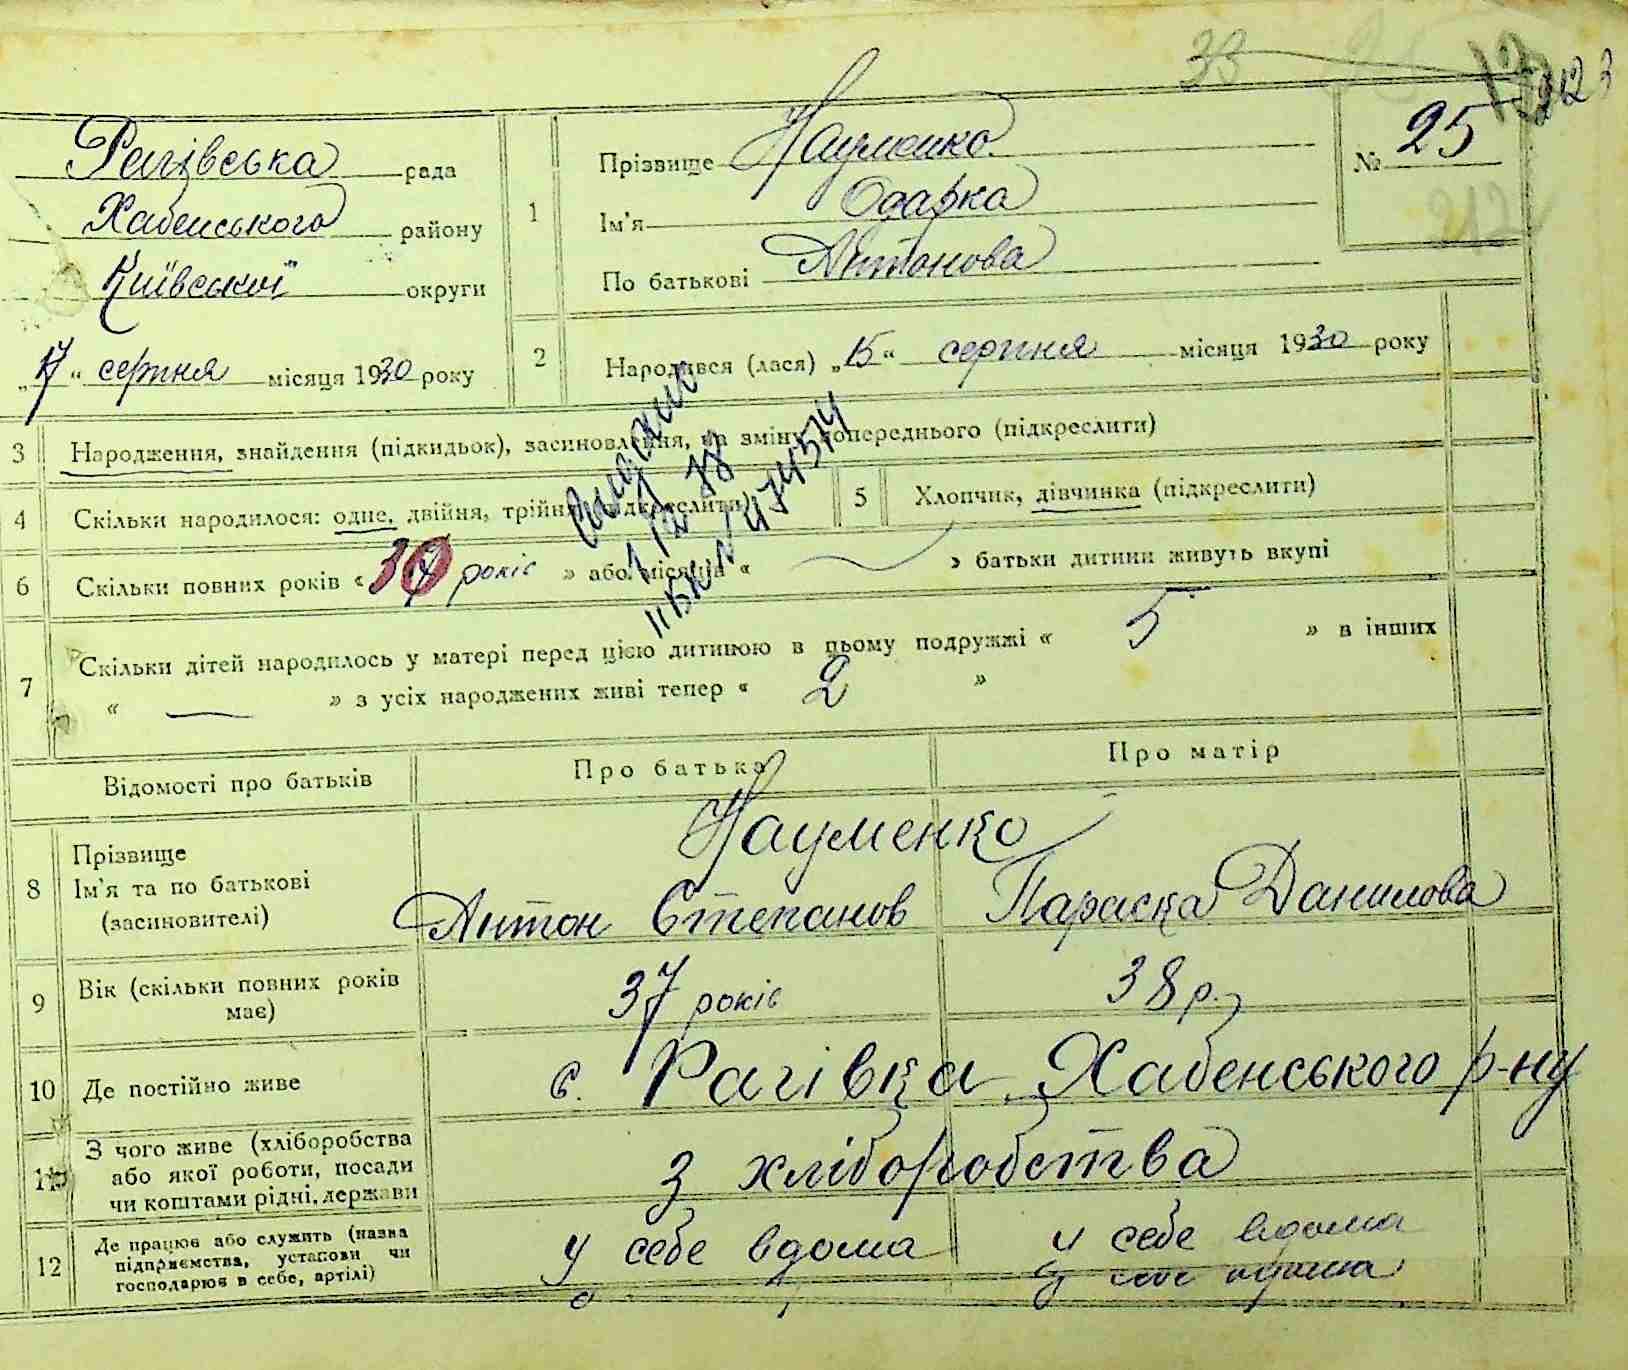 33
Рагівська рада
Хабенського району
Київської округи
„17“ серпня місяця 1930 року
1
Прізвище Науменко
Ім'я Одарка
По батькові Антонова
№ 25
212
2
Народився (лася) „15“ серпня місяця 1930 року
3
Народження, знайдення (підкидьок), засиновлення, на зміну попереднього (підкреслити)
4
Скільки народилося: одне, двійня, трійня (підкреслити)
5
Хлопчик, дівчинка (підкреслити)
6
Скільки повних років « років » або місяців « » батьки дитини живуть вкупі
7
Скільки дітей народилось у матері перед цією дитиною в цьому подружжі « 5 » в інших
« — » з усіх народжених живі тепер « 2 »
Відомості про батьків
Про батька
Про матір
8
Прізвище
Ім'я та по батькові
(засиновителі)
Науменко
Антон Степанов
Параска Данилова
9
Вік (скільки повних років
має)
37 років
38 р.
10
Де постійно живе
с. Рагівка Хабенського р-ну
11
З чого живе (хліборобства
або якої роботи, посади
чи коштами рідні, держави
з хліборобства
12
Де працює або служить (назва
підприємства, установи чи
господарює в себе, артілі)
у себе вдома
у себе вдома